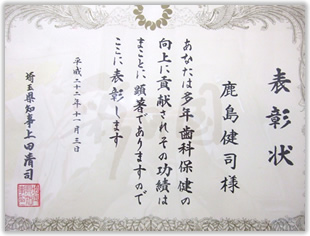 表彰状
鹿島健司様
あなたは多年歯科保健の
向上に貢献されその功績は
まことに顕著でありますので
ここに表彰します
平成二十二年十一月三日
埼玉県知事上田清司